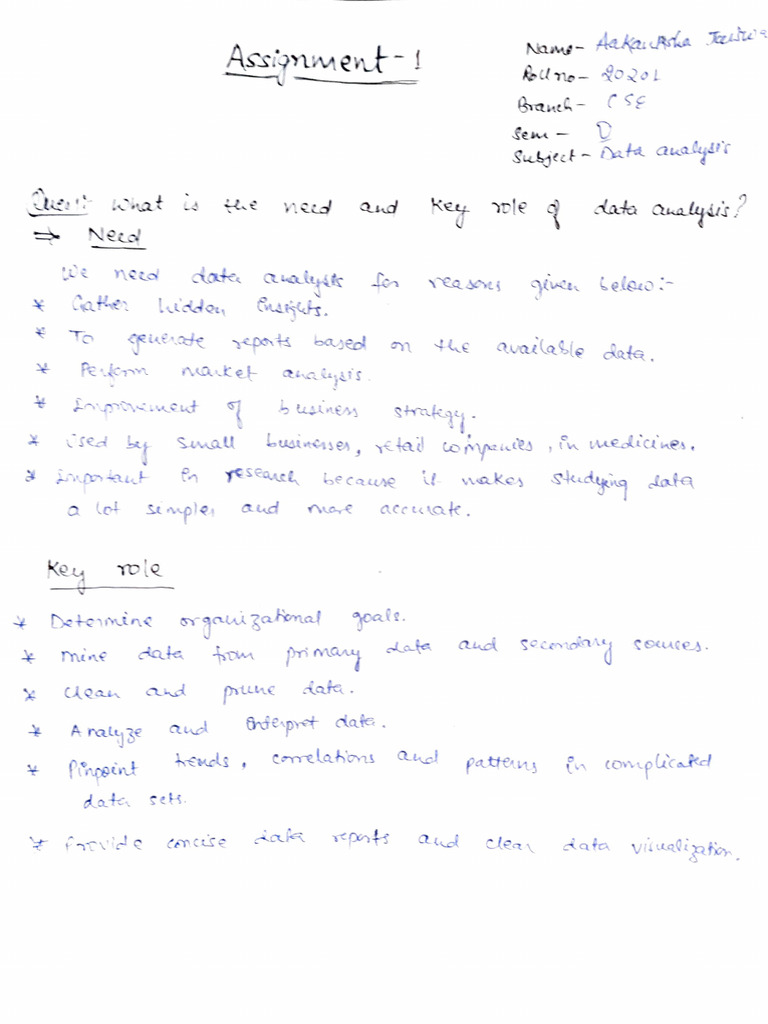 Assignment-1
Name- Aakanksha
Roll no- 20201
Branch- CSE
Sem-
Subject- Data analysis
Ques1: What is the need and key role of data analysis?
⇒ Need
We need data analysts for reasons given below:-
* Gather hidden insights.
* To generate reports based on the available data.
* Perform market analysis.
* Improvement of business strategy.
* Used by small businesses, retail companies, in medicines.
* Important in research because it makes studying data
a lot simpler and more accurate.
Key role
* Determine organizational goals.
* Mine data from primary data and secondary sources.
* Clean and prune data.
* Analyze and Interpret data.
* Pinpoint trends, correlations and patterns in complicated
data sets.
* Provide concise data reports and clear data visualization.